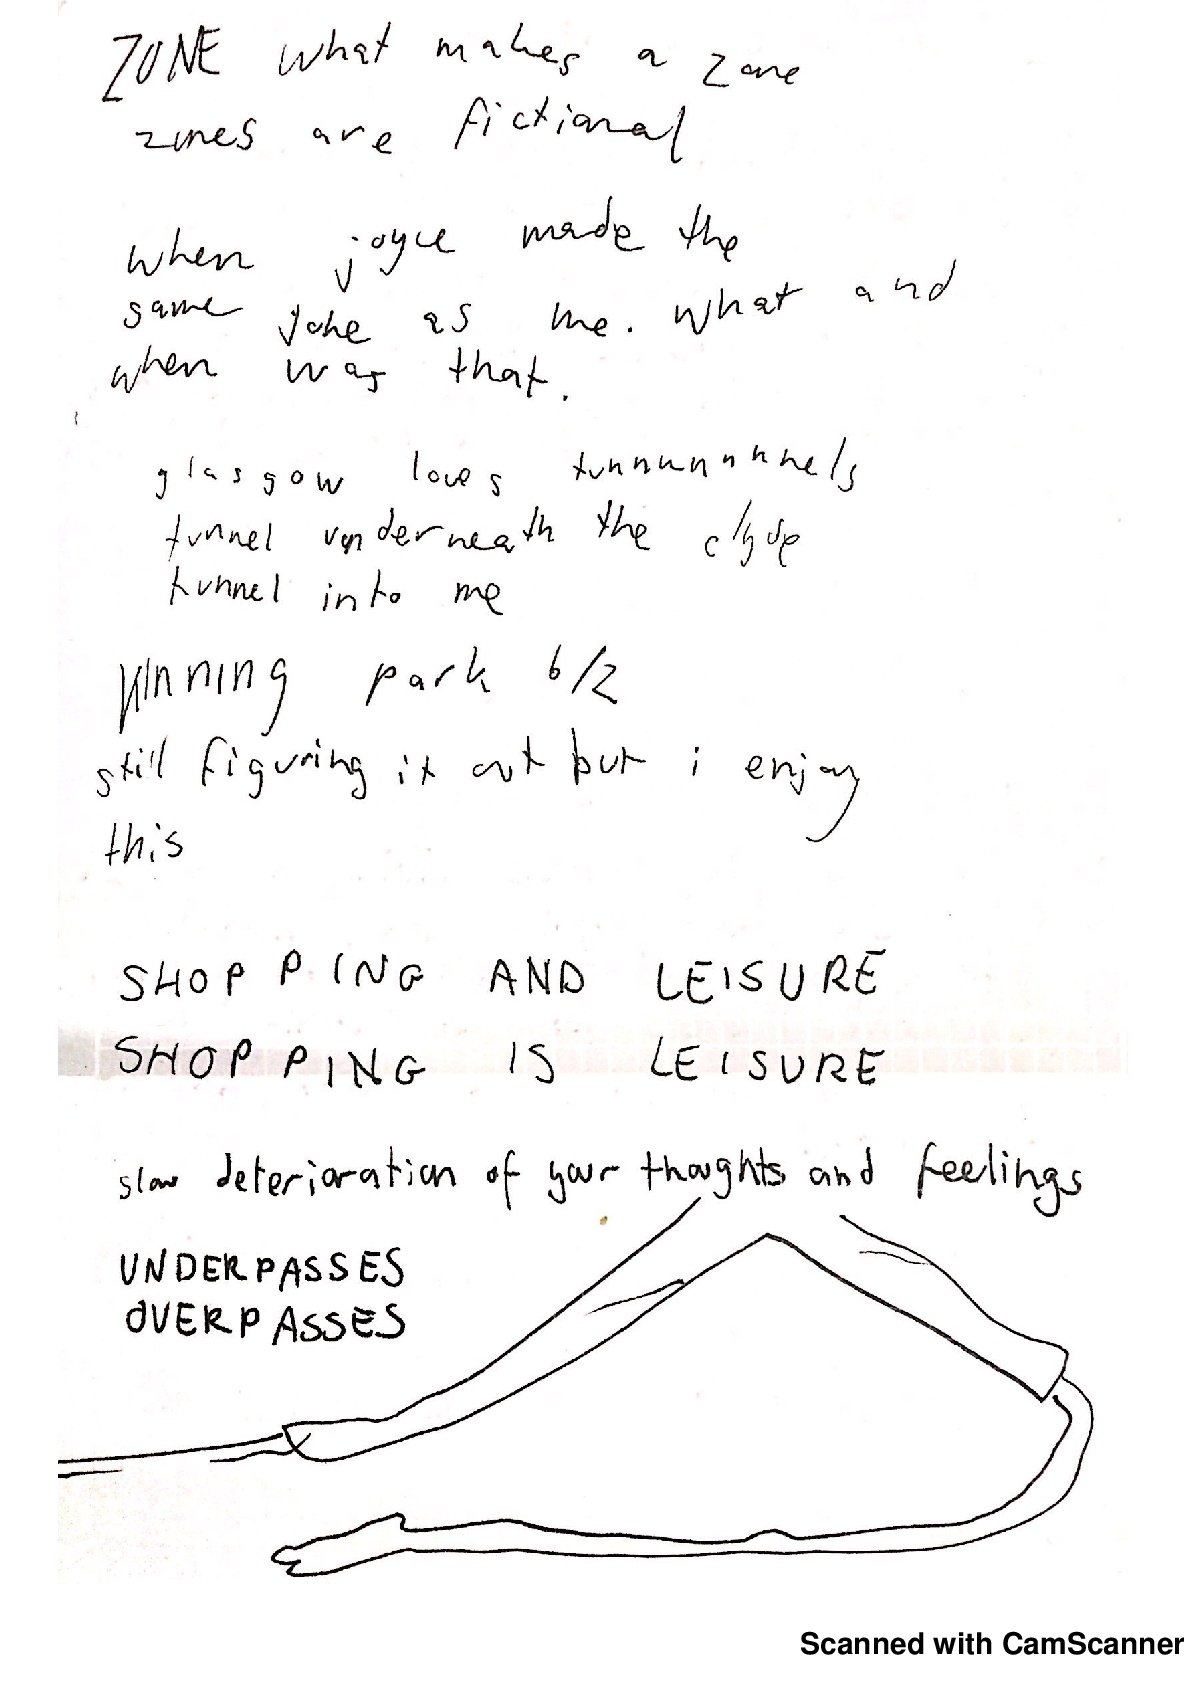 ZONE what makes a zone
zones are fictional
when joyce made the
same joke as me. what and
when was that.
glasgow loves tunnunnnnels
tunnel underneath the clyde
tunnel into me
KINNING park 6/2
still figuring it out but i enjoy
this
SHOPPING AND LEISURE
SHOPPING IS LEISURE
slow deterioration of your thoughts and feelings
UNDERPASSES
OVERPASSES
Scanned with CamScanner